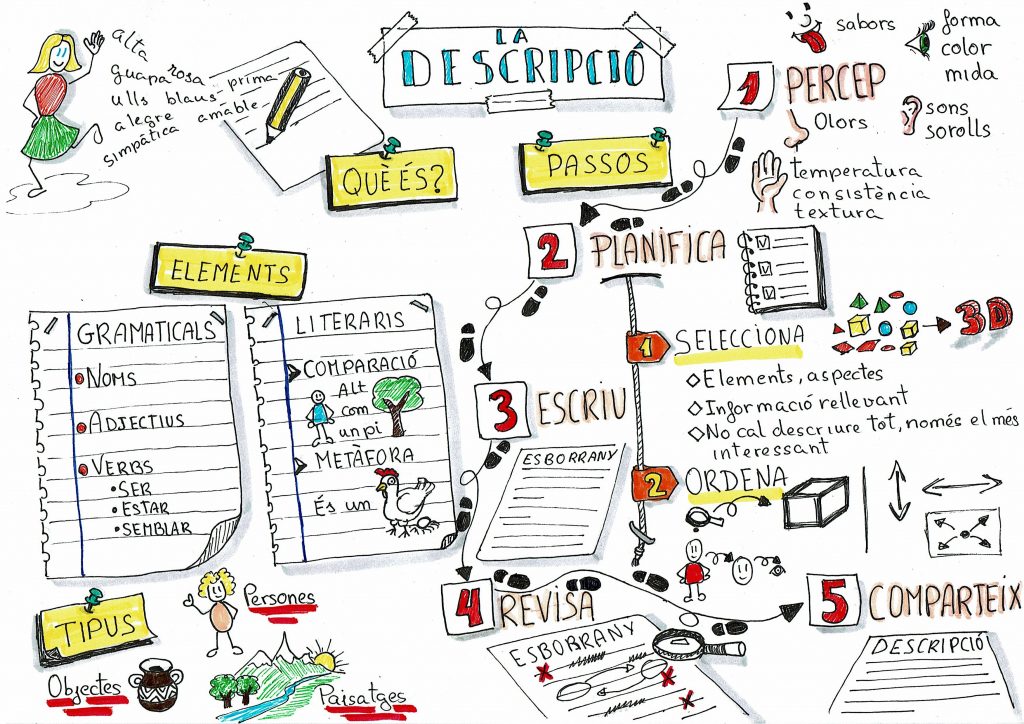 LA
DESCRIPCIÓ
alta
guapa rosa
ulls blaus prima
alegre amable
simpàtica
QUÈ ÉS?
PASSOS
1 PERCEP
sabors
forma
color
mida
Olors
sons
sorolls
temperatura
consistència
textura
2 PLANIFICA
1 SELECCIONA
3D
Elements, aspectes
Informació rellevant
No cal descriure tot, només el més
interessant
2 ORDENA
3 ESCRIU
ESBORRANY
4 REVISA
ESBORRANY
5 COMPARTEIX
DESCRIPCIÓ
ELEMENTS
GRAMATICALS
NOMS
ADJECTIUS
VERBS
SER
ESTAR
SEMBLAR
LITERARIS
COMPARACIÓ
ALT
com
un pi
METÀFORA
És un
TIPUS
Persones
Objectes
Paisatges